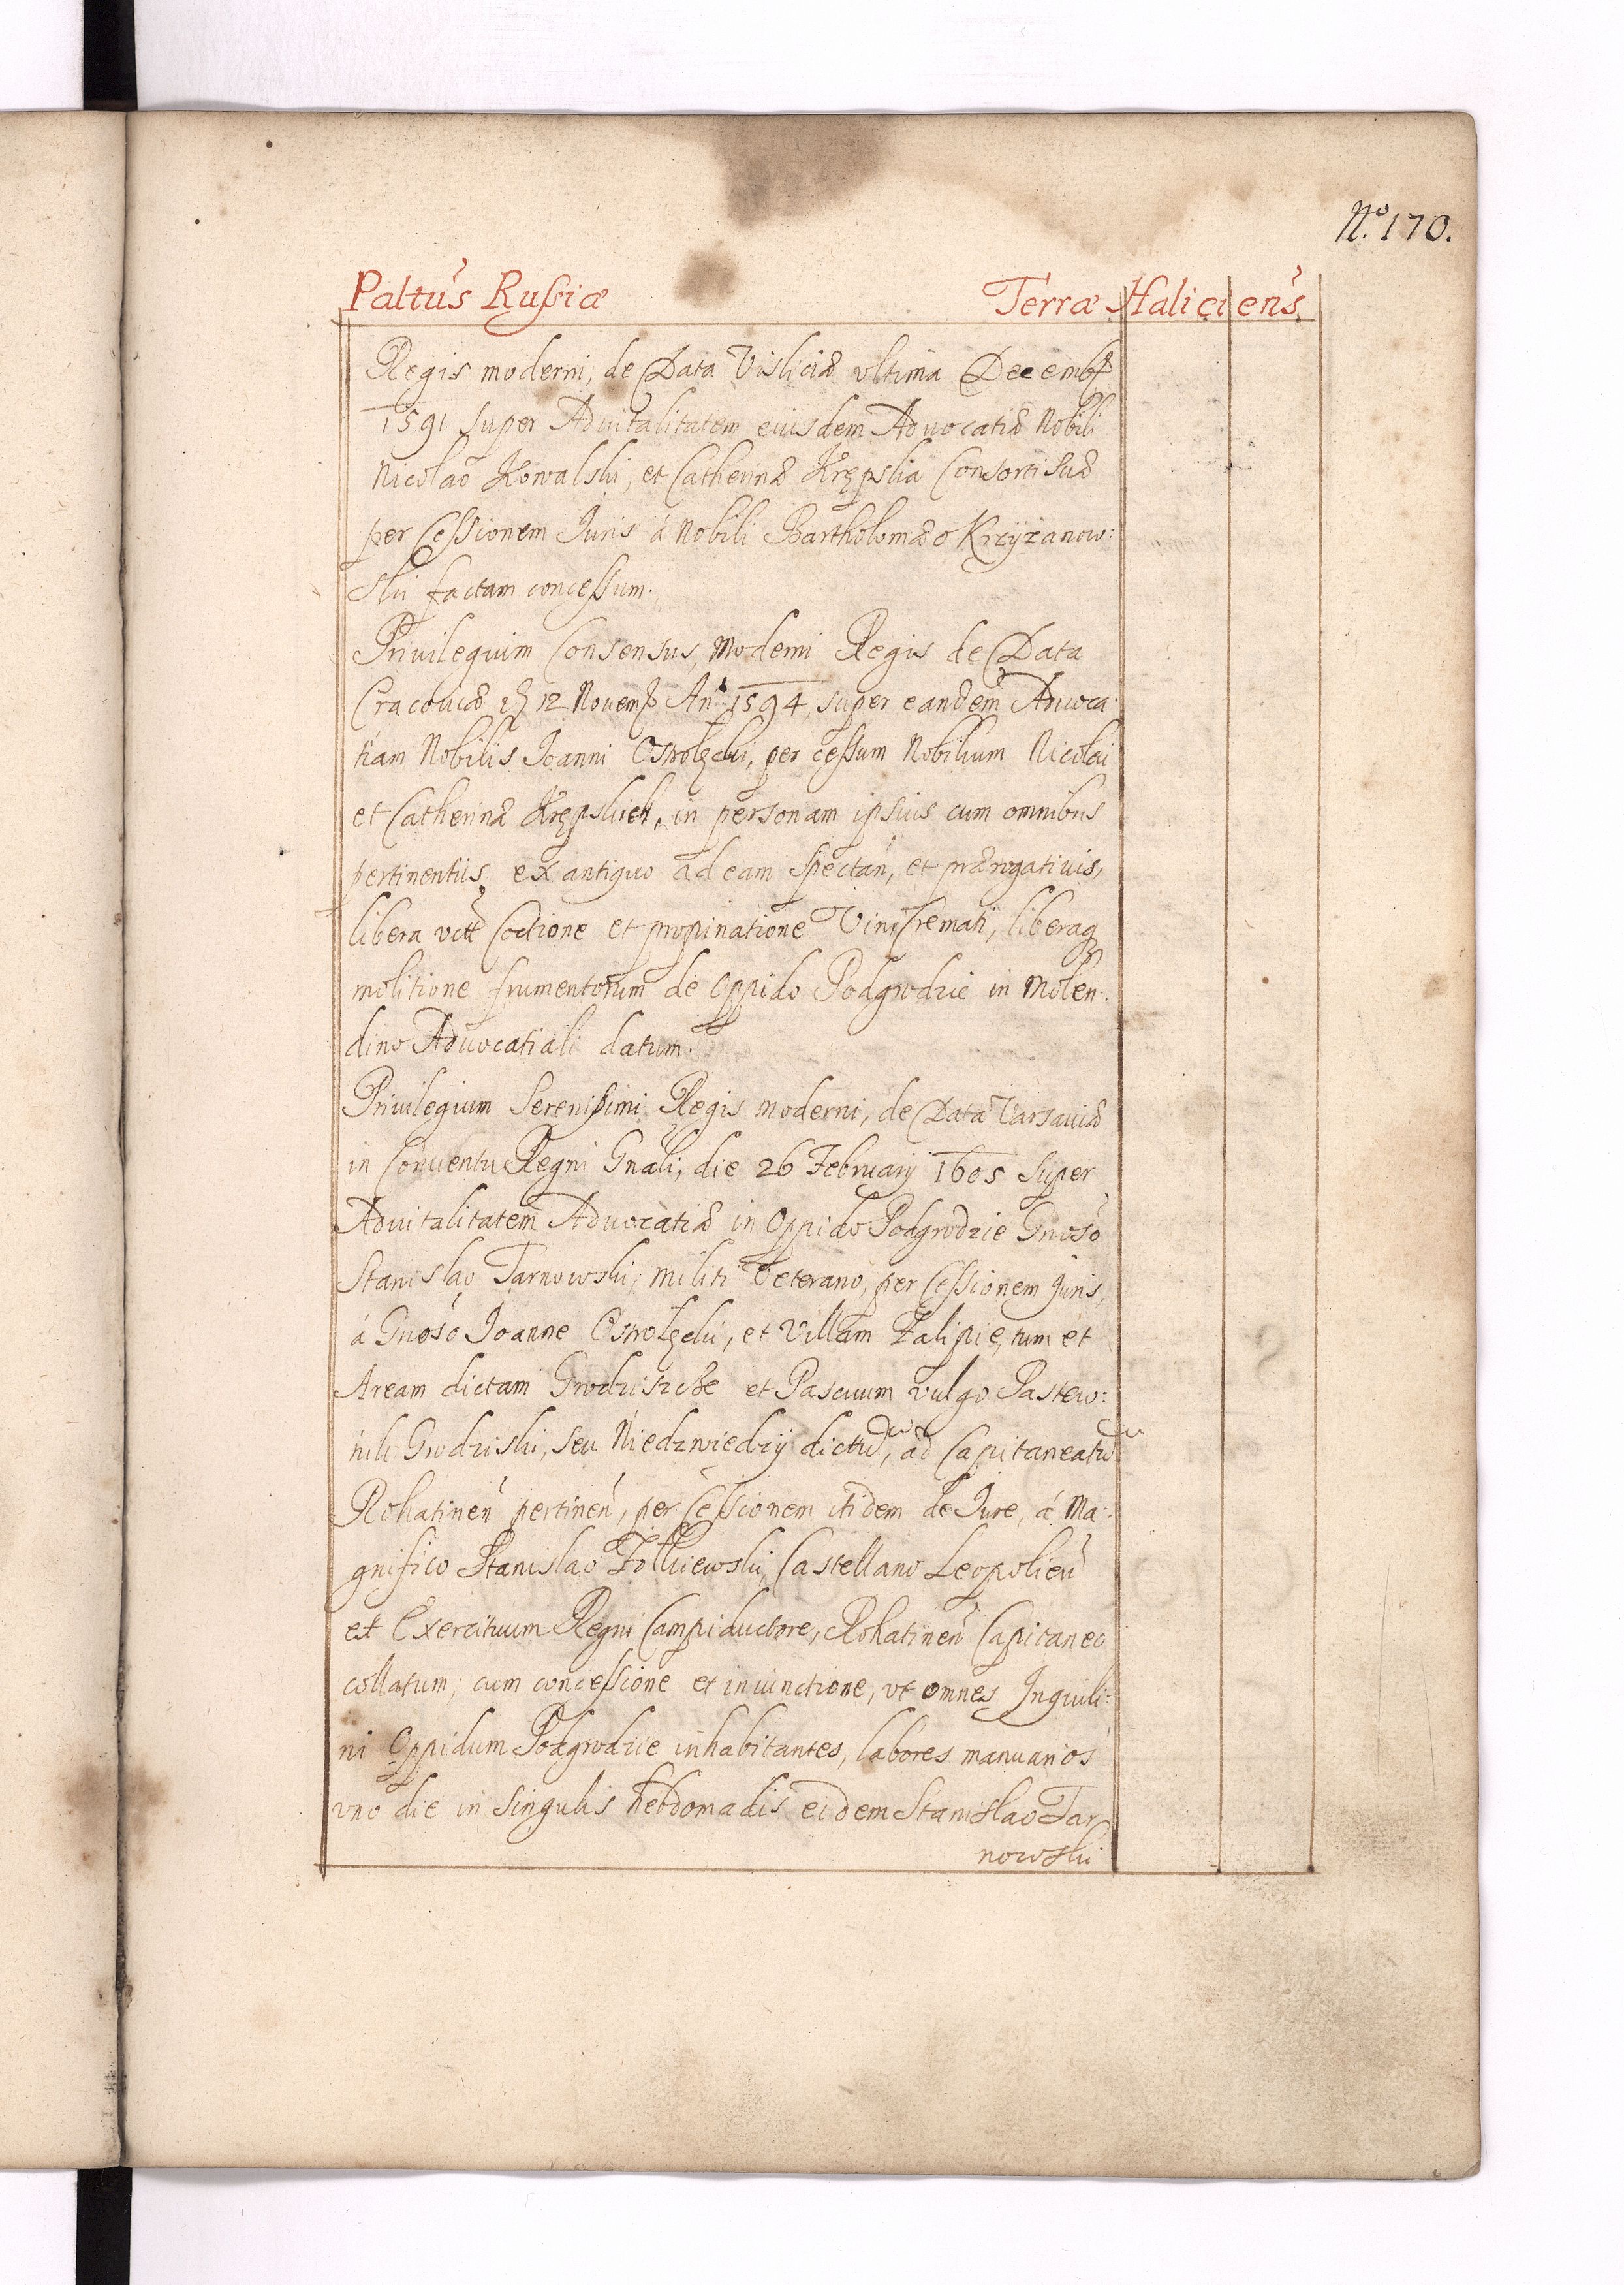 Nº. 170.
Paltus Russiæ Terræ Haliciens
Regis moderni, de Data Visliciæ vltima Decemb
1591 super Aduitalitatem eiusdem Aduocatiæ Nobili
Nicolao Kowalski, et Catherinæ Krępskia Consorti suæ
per Cessionem Iuris á Nobili Bartholomæo Krzyżanow:
ski factam concessum.
Priuilegium Consensus, Moderni Regis de Data
Cracouiæ 12 Nouemb An: 1594, super eandem Aduoca:
tiam Nobilis Ioanni Ostrolęcki, per cessum Nobilium Nicolai
et Catherinæ Krępskich, in personam ipsius cum omnibus
pertinentiis ex antiquo ad eam spectań, et prærogatiuis,
libera vctt Coctione et propinatione Vini Cremati, liberaq
molitione frumentorum de Oppido Podgrodzie in Molen:
dino Aduocatiali datum.
Priuilegium Serenissimi Regis moderni, de Data Varsauiæ
in Conuentu Regni Gnali, die 26 February 1605 super
Aduitalitatem Aduocatiæ in Oppido Podgrodzie Gnoso
Stanislao Tarnowski, militi Veterano, per Cessionem Iuris,
á Gnoso Ioanne Ostrolęcki, et Villam Zalipie, tum et
Aream dictam Grodziszcze et Pascuum vulgo Pastew:
nik Grodziski, seu Niedzwiedzy dictũ, ad Capitaneatũ
Rohatineń pertineń, per Cessionem itidem de Iure, á Ma:
gnifico Stanislao Zolkiewski, Castellano Leopolień
et Exercituum Regni Campiductore, Rohatineń Capitaneo
collatum, cum concessione et iniunctione, vt omnes Inquili:
ni Oppidum Podgrodzie inhabitantes, labores manuarios
vno die in singulis hebdomadis eidem Stanislao Tar
nowski